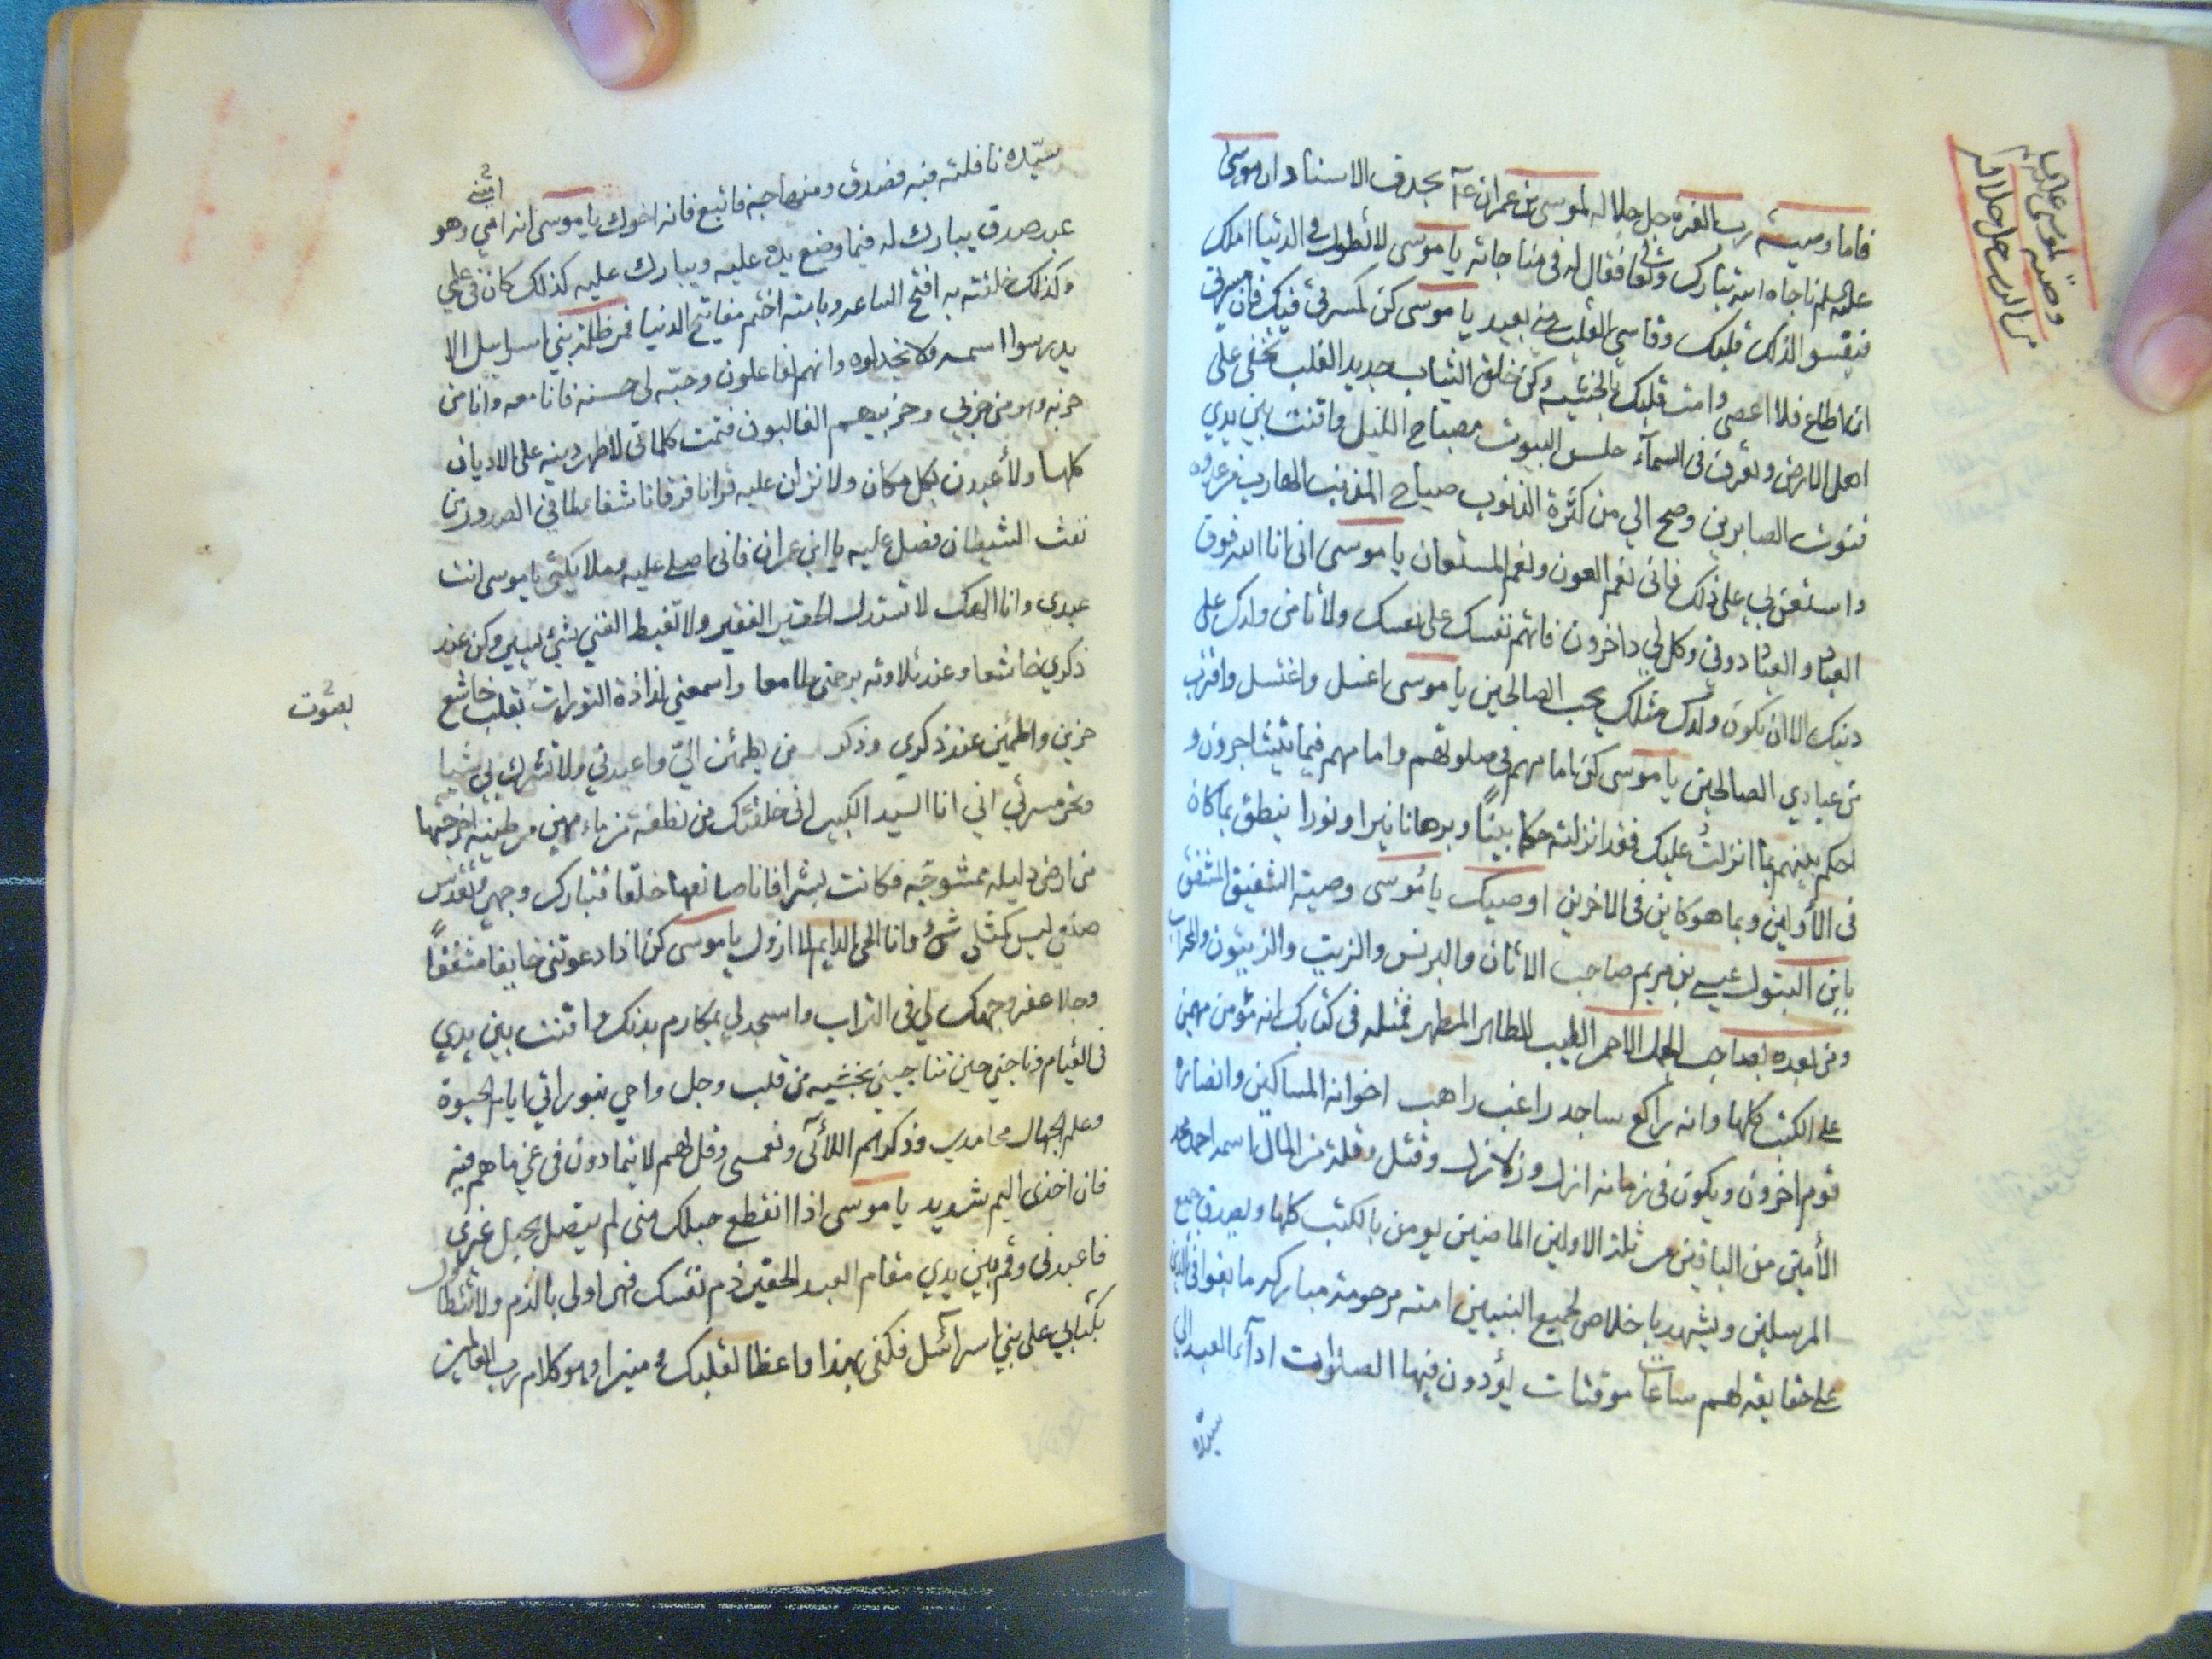 وصية لموسى عليه السلام
من الرب جل جلاله
فاما وصية رب العزة جل جلاله لموسى بن عمران عم بحذف الاسناد ان موسى
عليه السلم ناجاه الله تبارك وتعالى فقال له في مناجاته يا موسى لا تطول في الدنيا املك
فيقسو لذلك قلبك وقاسي القلب مني بعيد يا موسى كن كمسرتي فيك فان مسرتي
ان اطاع فلا اعصى وامت قلبك بالخشية وكن خلق الثياب جديد القلب تخفى على
اهل الارض وتعرف في السمآء حلس البيوت مصباح الليل واقنت بين يدي
قنوت الصابرين وصح الي من كثرة الذنوب صياح المذنب الهارب من عدوه
واستعن بي على ذلك فاني نعم العون ونعم المستعان يا موسى اني انا الله فوق
العباد والعباد دوني وكل لي داخرون فاتهم نفسك على نفسك ولا تأمن ولدك على
دينك الا ان يكون ولدك مثلك يحب الصالحين يا موسى اغسل واغتسل واقترب
من عبادي الصالحين يا موسى كن امامهم في صلوتهم وامامهم فيما يتشاجرون و
احكم بينهم بما انزلت عليك فقد انزلته حكما بينا وبرهانا نيرا ونورا ينطق بما كان
في الأولين وبما هو كاين في الاخرين اوصيك يا موسى وصية الشفيق المشفق
بابن البتول عيسى بن مريم صاحب الاتان والبرنس والزيت والزيتون والمحراب
ومن بعده بصاحب الجمل الاحمر الطيب الطاهر المطهر فمثله في كتابك انه مؤمن مهيمن
على الكتب كلها وانه راكع ساجد راغب راهب اخوانه المساكين وانصاره
قوم اخرون ويكون في زمانه ازل وزلازل وقتل وقلة من المال اسمه احمد محمد
الأمين من الباقين من ثلة الاولين الماضين يومن بالكتب كلها ويصدق جميع
المرسلين ويشهد باخلاص لجميع النبيين امته مرحومة مباركة ما بقوا في الدين
على حقايقه لهم ساعات موقتات يؤدون فيها الصلوات ادآء العبد الى
سيده
سيده نافلته فبه فصدق ومنهاجه فاتبع فانه اخوك يا موسى انه امي وهو
اميني
عبد صدق يبارك له فيما وضع يده عليه ويبارك عليه كذلك كان في علمي
وكذلك خلقته به افتح الساعة وبامته اختم مفاتيح الدنيا فمر ظلمة بني اسراييل الا
يدرسوا اسمه ولا يخذلوه وانهم لفاعلون وحبه لي حسنة فانا معه وانا من
حزبه وهو من حزبي وحزبهم الغالبون فتمت كلماتي لاظهرن دينه على الاديان
كلها ولأعبدن بكل مكان ولانزلن عليه قرانا فرقانا شفاء لما في الصدور من
نفث الشيطان فصل عليه يا ابن عمران فاني اصلي عليه وملائكتي يا موسى انت
عبدي وانا الهك لا تستذل الحقير الفقير ولا تغبط الغني بشيء يسير وكن عند
ذكري خاشعا وعند تلاوته برحمتي طامعا واسمعني لذاذة التورات بقلب خاشع
بصوت
حزين واطمئن عند ذكري وذكر من يطمئن الي واعبدني ولا تشرك بي شيا
وتحر مسرتي اني انا السيد الكبير اني خلقتك من نطفة من ماء مهين من طينة اخرجتها
من ارض ذليلة ممشوجة فكانت بشرا فانا صانعها خلقا فتبارك وجهي وتقدس
صنعي ليس كمثلي شيء وانا الحي الدايم لا ازول يا موسى كن اذا دعوتني خايفا مشفقا
وجلا عفر وجهك لي في التراب واسجد لي بمكارم بدنك واقنت بين يدي
في القيام وناجني حين تناجيني بخشية من قلب وجل واحي بتوراتي ايام الحيوة
وعلم الجهال محامدي وذكرهم اللآئي ونعمي وقل لهم لا يتمادون في غي ما هم فيه
فان اخذي اليم شديد يا موسى اذا انقطع حبلك مني لم يتصل بحبل غيري
فاعبدني وقم بين يدي مقام العبد الحقير ذم نفسك فهي اولى بالذم ولا تتطاول
بكتابي على بني اسرائيل فكفى بهذا واعظا لقلبك ومنيرا وهو كلام رب العالمين